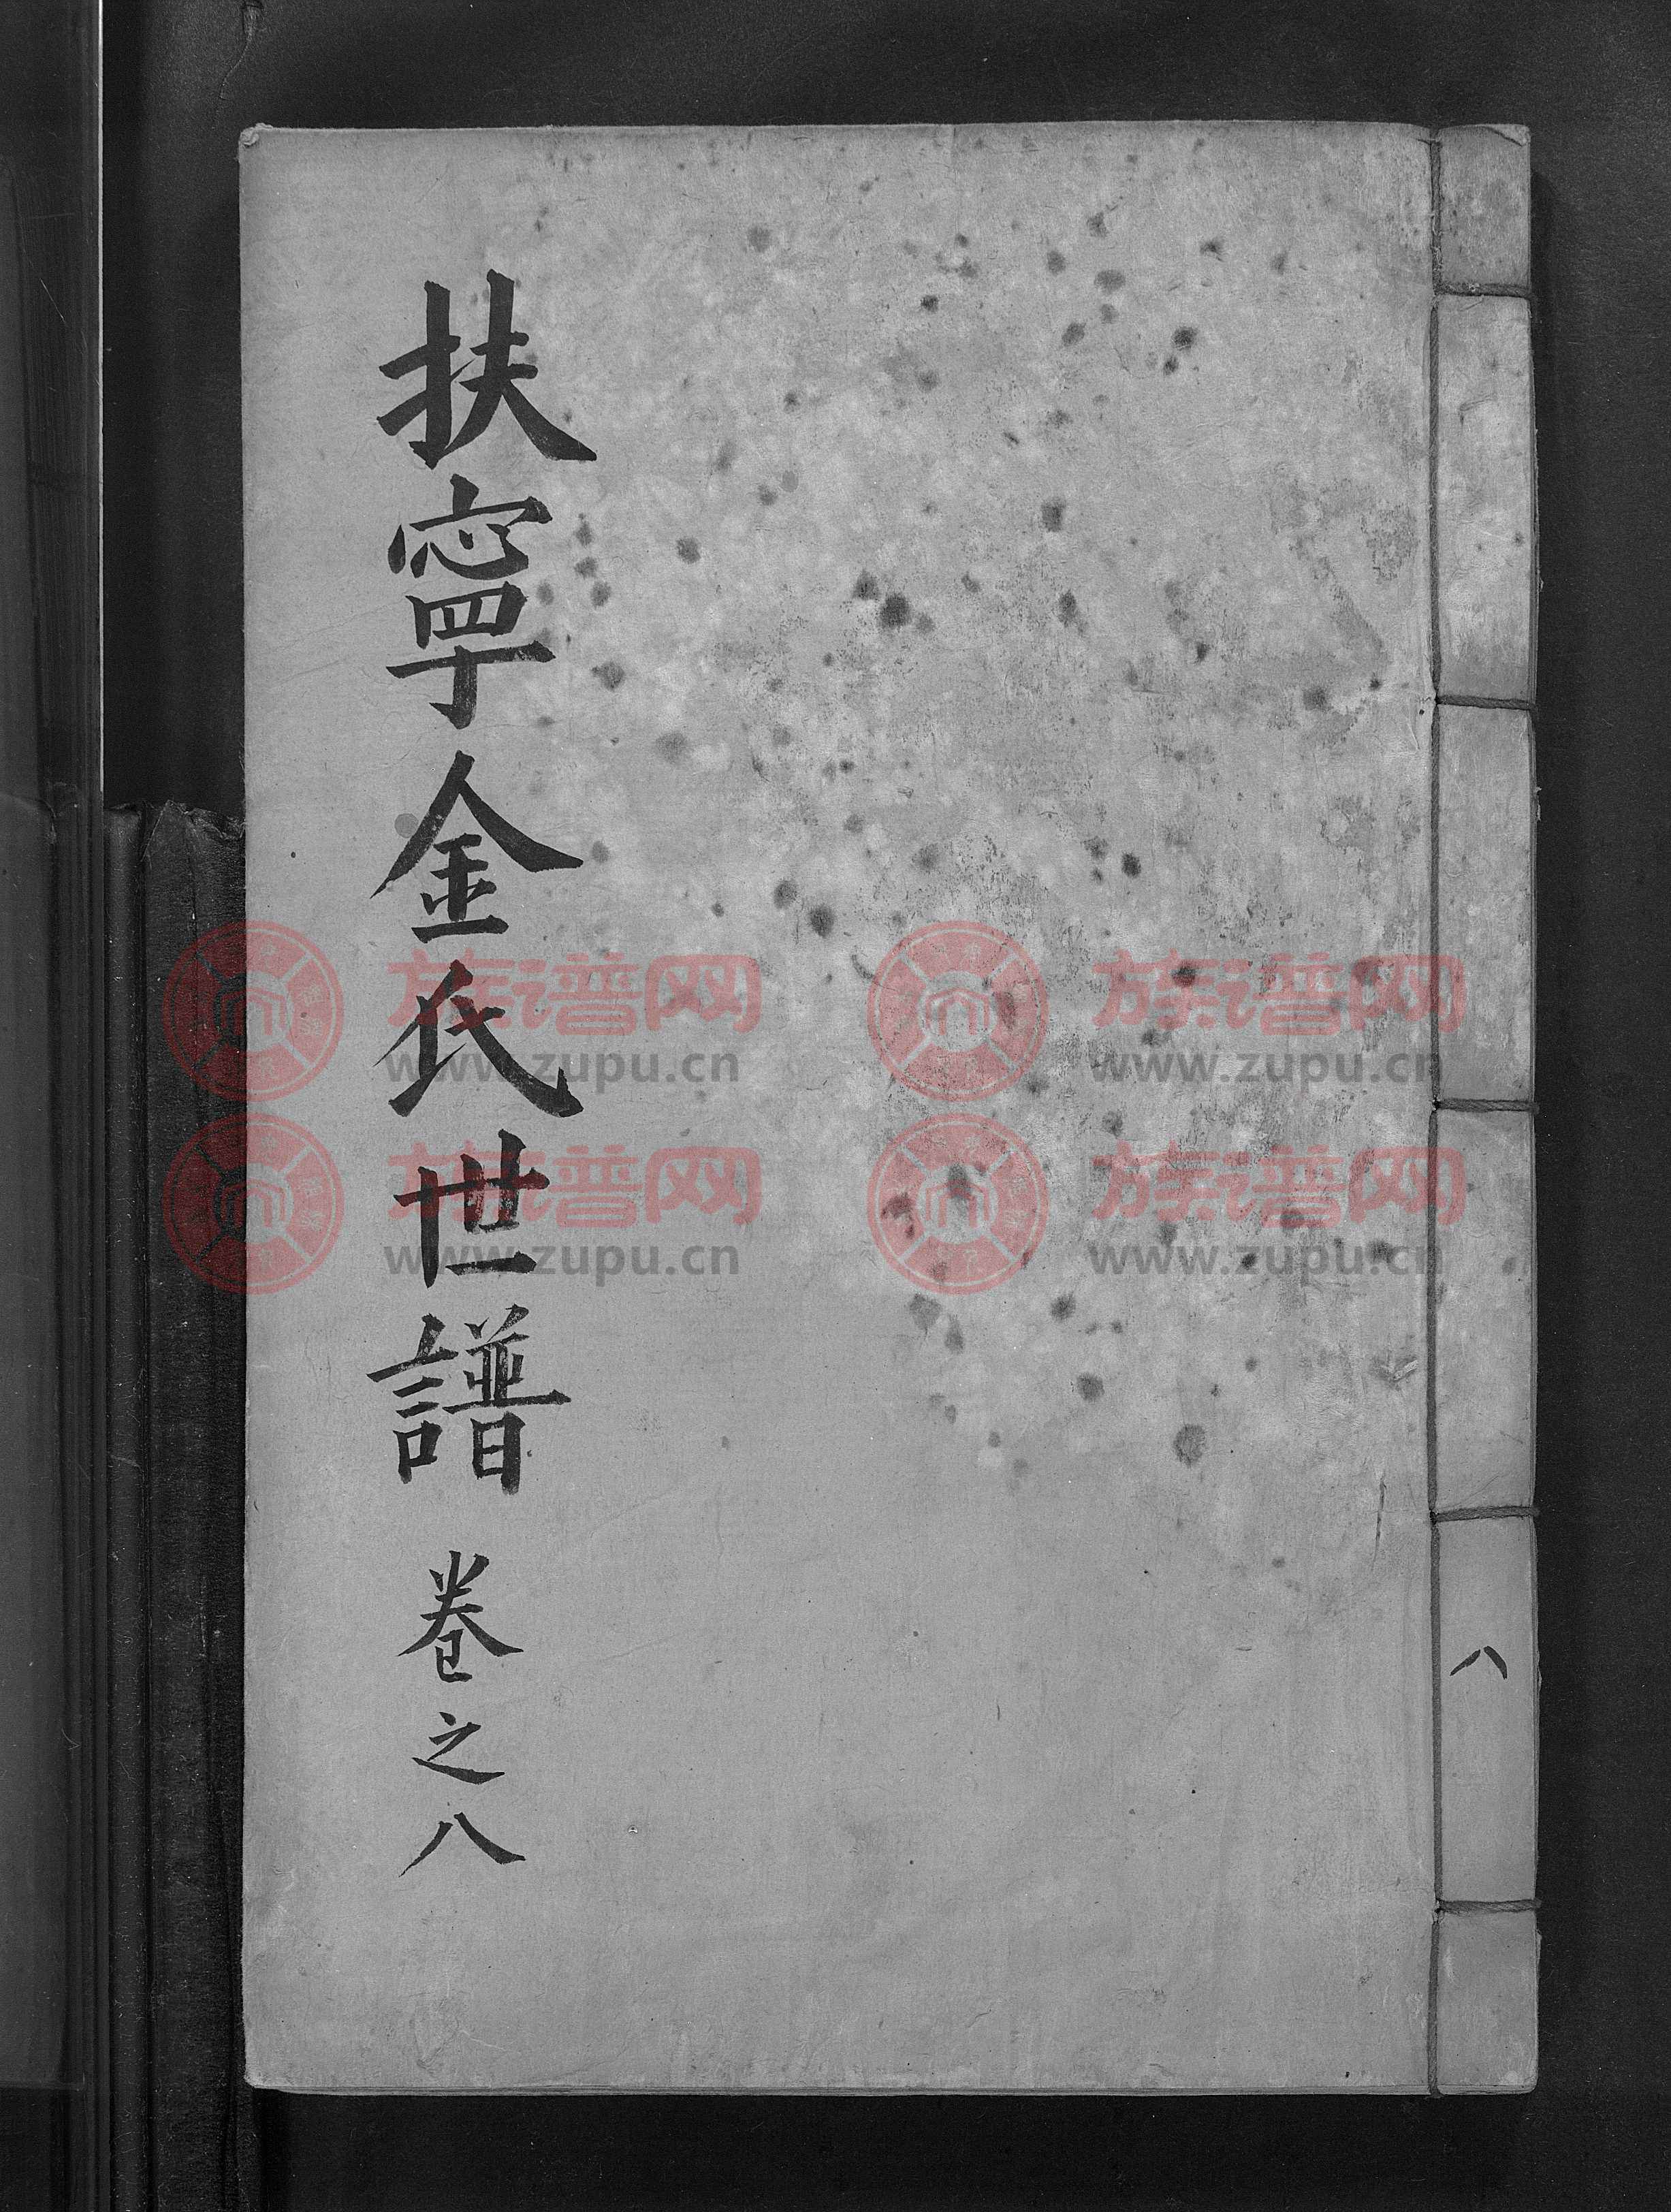 扶寧金氏世譜 卷之八
八
族谱网 族谱网
www.zupu.cn www.zupu.cn
族谱网 族谱网
www.zupu.cn www.zupu.cn